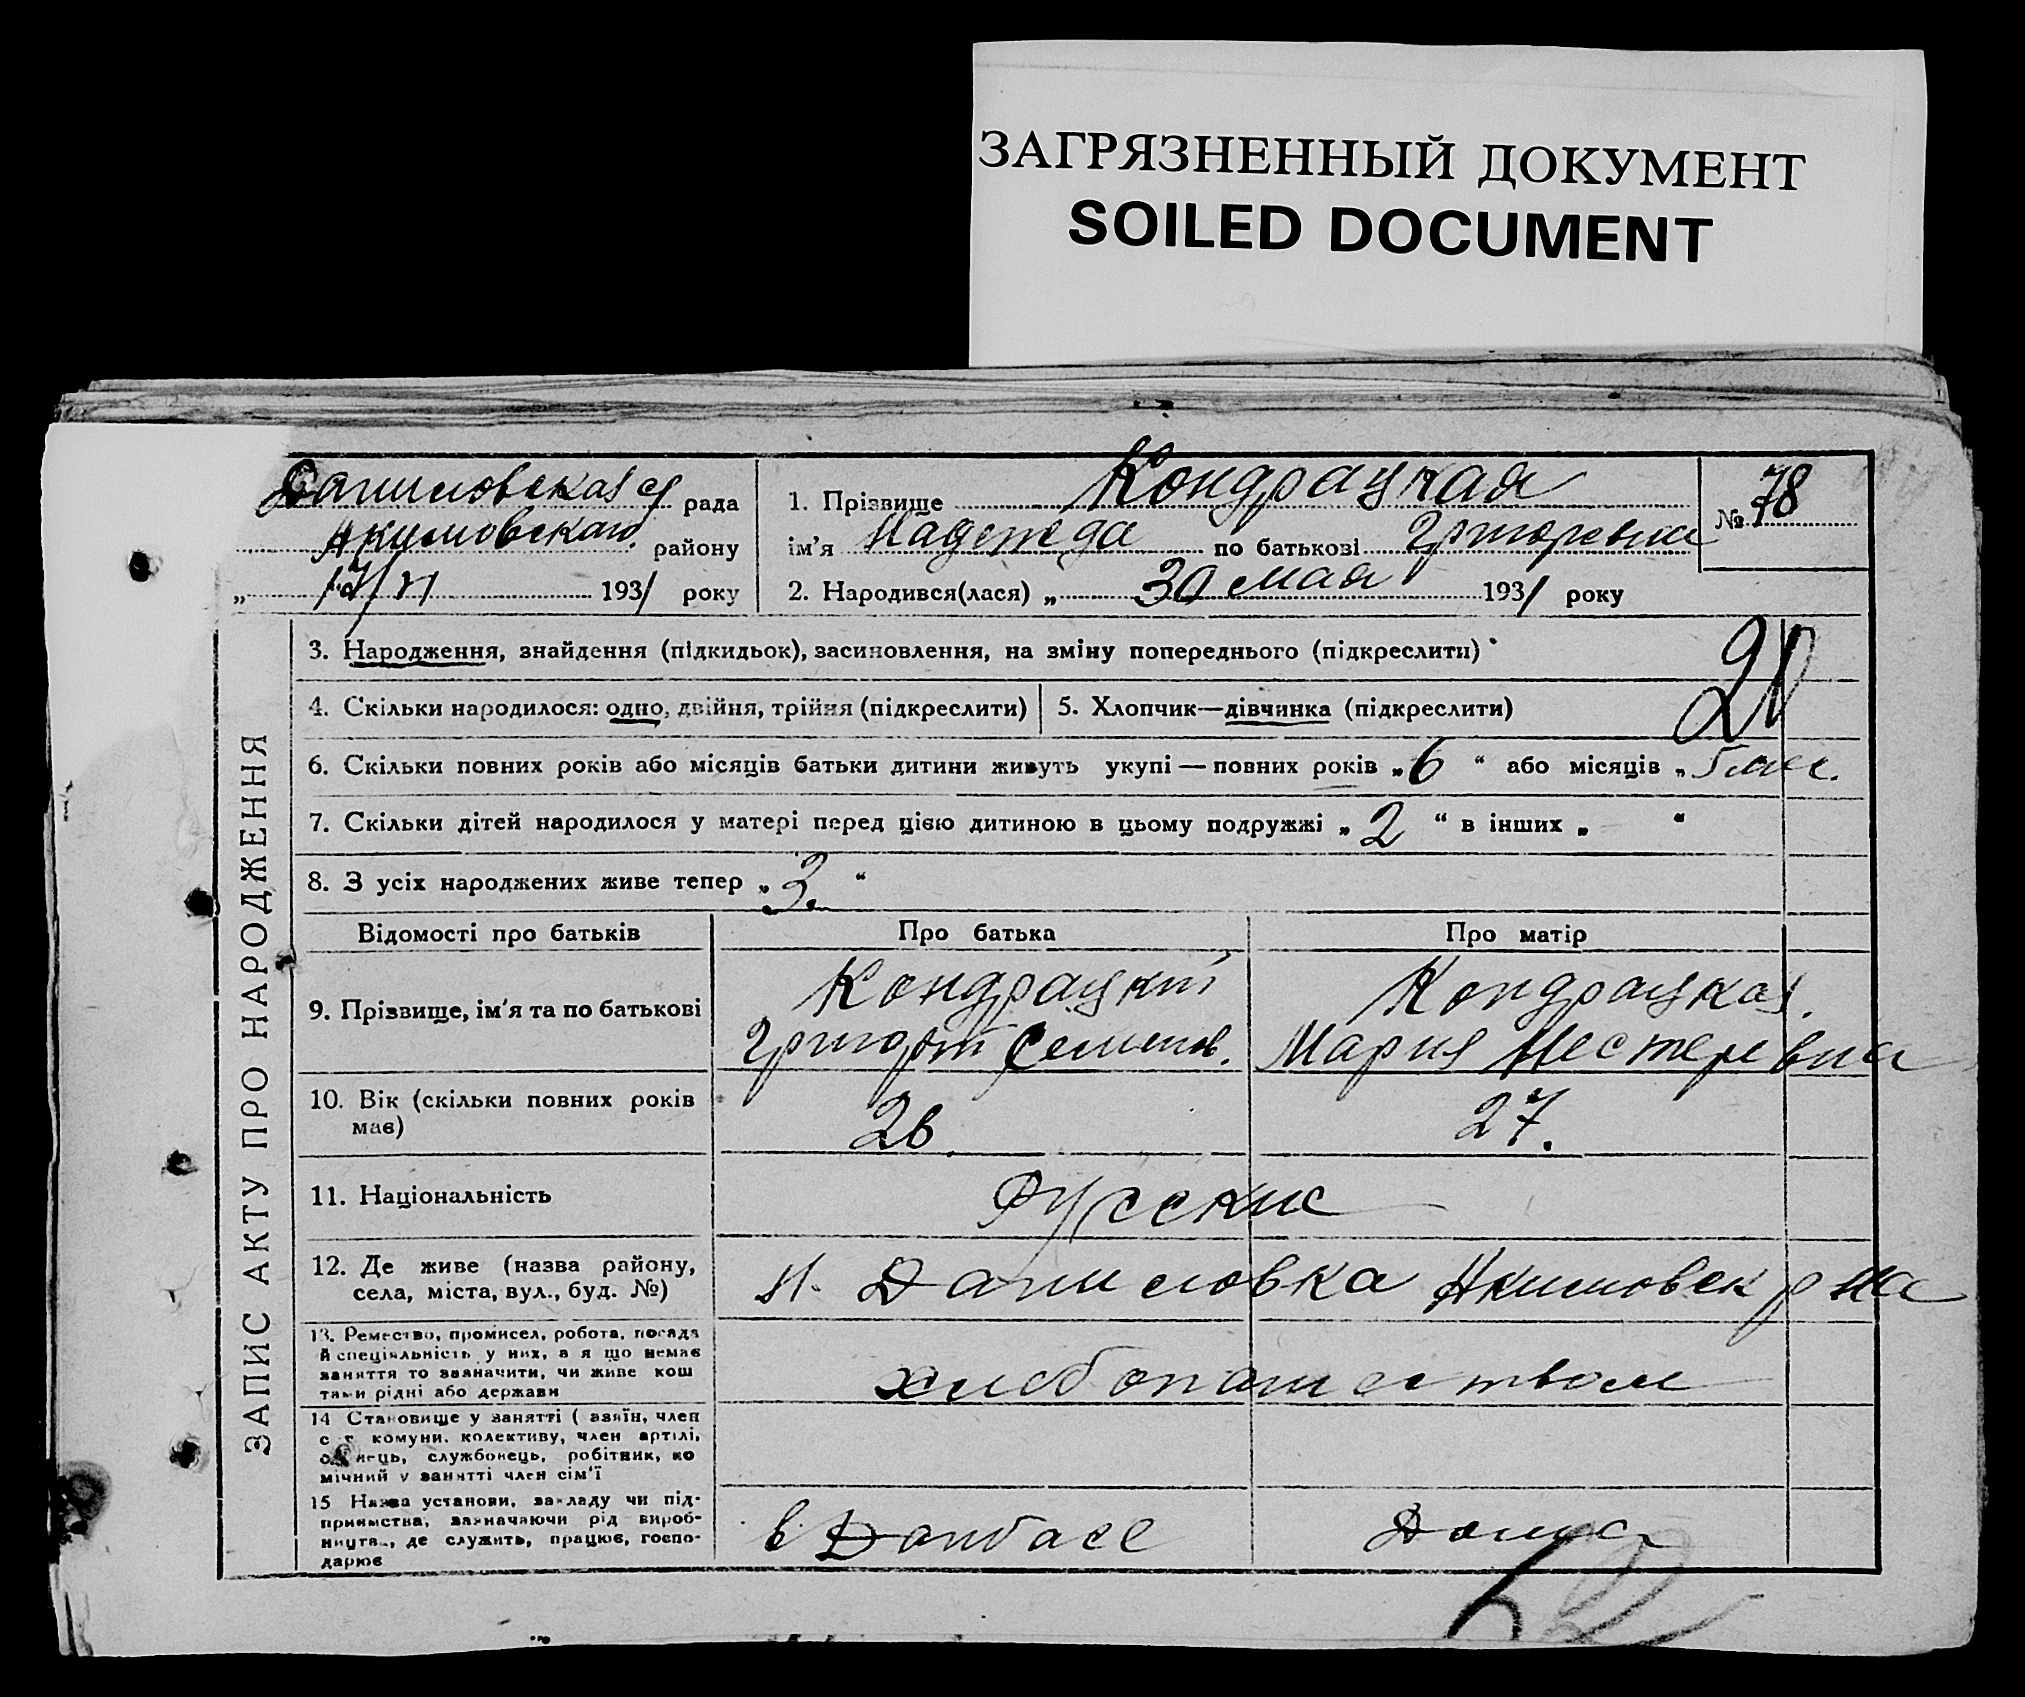 ЗАГРЯЗНЕННЫЙ ДОКУМЕНТ
SOILED DOCUMENT
Даниловская с/ рада
Акимовского району
„ 17/VI 1931 року
1. Прізвище Кондрацкая
ім'я Надежда по батькові Григоревна
2. Народився(лася) „ 30 мая 1931 року
№ 78
3. Народження, знайдення (підкидьок), засиновлення, на зміну попереднього (підкреслити)
4. Скільки народилося: одно, двійня, трійня (підкреслити)
5. Хлопчик—дівчинка (підкреслити)
6. Скільки повних років або місяців батьки дитини живуть укупі — повних років „ 6 “ або місяців „
7. Скільки дітей народилося у матері перед цією дитиною в цьому подружжі „ 2 “ в інших „ “
8. З усіх народжених живе тепер „ 3. “
ЗАПИС АКТУ ПРО НАРОДЖЕННЯ
Відомості про батьків
Про батька
Про матір
9. Прізвище, ім'я та по батькові
Кондрацкий
Григорий Семенов.
Кондрацкая.
Мария Нестеревна
10. Вік (скільки повних років
має)
26.
27.
11. Національність
Русские
12. Де живе (назва району,
села, міста, вул., буд. №)
Н. Даниловка Акимовск р на
13. Ремество, промисел, робота, посада
й спеціяльність у них, а я що немає
заняття то зазначити, чи живе кош
тами рідні або держави
хлебопашеством
14 Становище у занятті ( азяїн, член
с г комуни. колективу, член артілі,
службовець, робітник, по
мічний у занятті член сім'ї
15 Назва установи, закладу чи під-
приємства, зазначаючи рід вироб-
ництва, де служить, працює, госпо-
дарює
в Донбасе
Дома